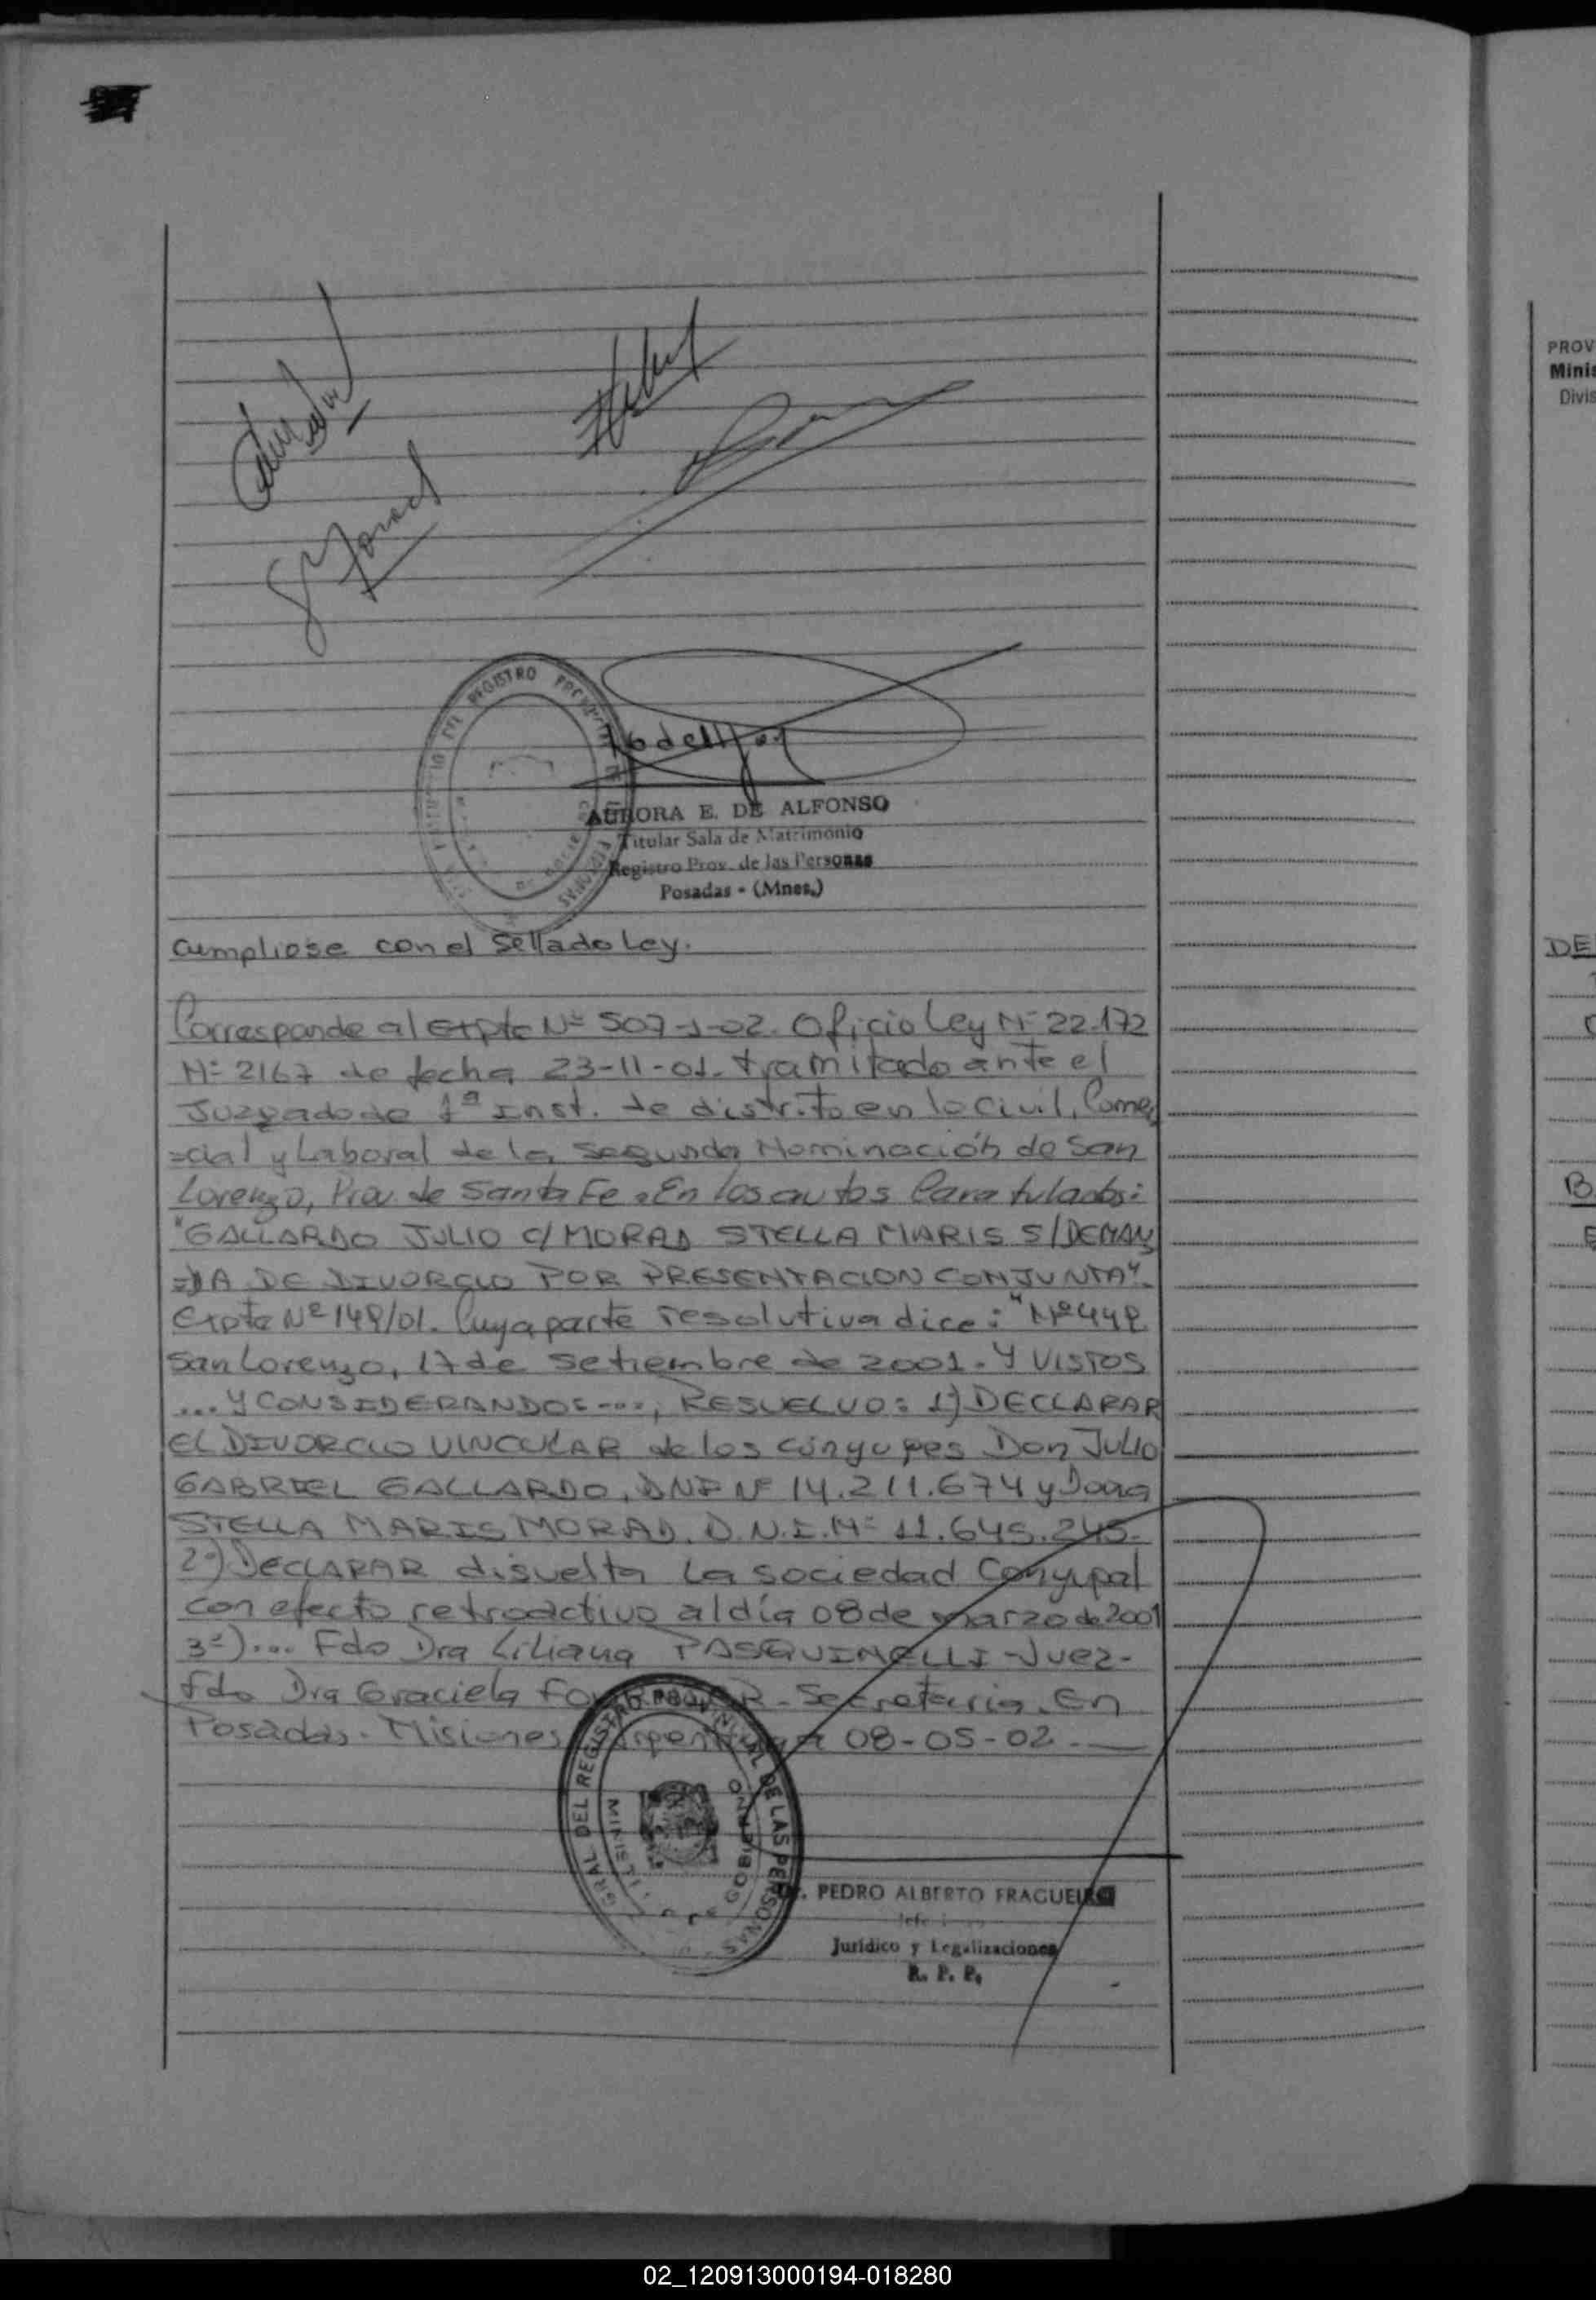 REGISTRO PROVINCIAL DE
AURORA E. DE ALFONSO
Titular Sala de Matrimonio
Registro Prov. de las Personas
Posadas - (Mnes.)
cumpliose con el Sellado Ley.
Corresponde al Expte Nº 507-J-02. Oficio Ley Nº 22.172
Nº 2167 de fecha 23-11-01. tramitado ante el
Juzgado de 1ª Inst. de distrito en lo Civil, Comer
=cial y Laboral de la Segunda Nominación de San
Lorenzo, Prov. de Santa Fe. En los autos Caratulados:
"GALLARDO JULIO C/ MORAD STELLA MARIS S/DEMAN
=DA DE DIVORCIO POR PRESENTACION CONJUNTA".
Expte Nº 149/01. Cuya parte resolutiva dice: "Nº 449.
San Lorenzo, 17 de Setiembre de 2001. Y VISTOS
... Y CONSIDERANDO: ...; RESUELVO: 1) DECLARAR
EL DIVORCIO VINCULAR de los cónyuges Don JULIO
GABRIEL GALLARDO, DNI Nº 14.211.674 y Doña
STELLA MARIS MORAD. D.N.I. Nº 11.645.245.
2º) DECLARAR disuelta la sociedad Conyugal
con efecto retroactivo al día 08 de marzo de 2001
3º)... Fdo Dra Liliana PASQUINELLI - Juez-
Fdo Dra Graciela - Secretaria. En
Posadas. Misiones Argentina a 08-05-02.
GRAL DEL REGISTRO PROVINCIAL DE LAS PERSONAS
GOBIERNO
Dr. PEDRO ALBERTO FRAGUEIRO
Jurídico y Legalizaciones
R. P. P.
PROV
Minis
Divis
DE
B
02_120913000194-018280